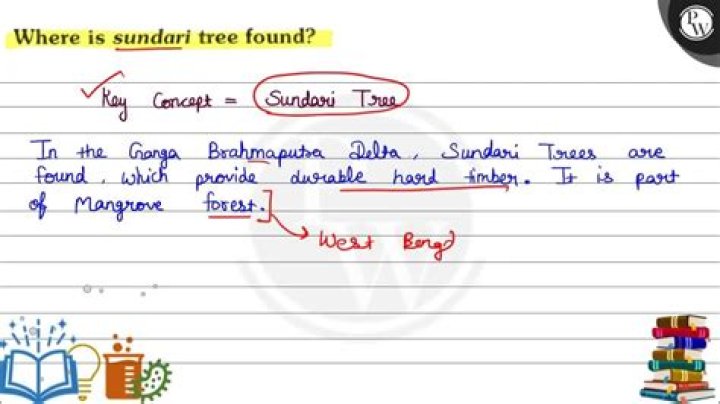 Where is sundari tree found?
Key Concept = Sundari Tree
In the Ganga Brahmaputra Delta, Sundari Trees are
found, which provide durable hard timber. It is part
of Mangrove forest.
West Bengal
PW